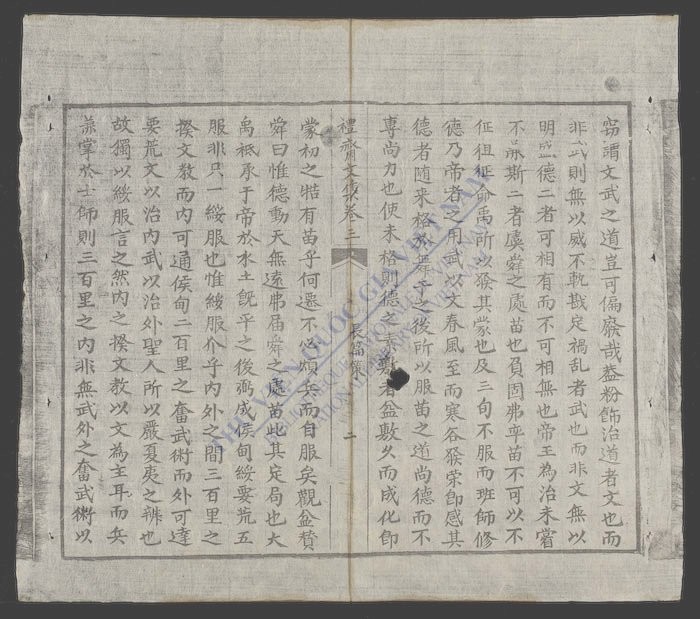 窃謂文武之道豈可偏廢哉葢粉飾治道者文也而
非武則無以威不軌戡定禍乱者武也而非文無以
明盛德二者可相有而不可相無也帝王為治未嘗
不兼斯二者虞舜之處苗也負固弗率苗不可以不
征徂征命禹所以發其蒙也及三旬不服而班師修
德乃帝者之用武以文春風至而寒谷發荣卽感其
德者随来格於舞干之後所以服苗之道尚德而不
專尚力也使未格則德之素敷者益敷久而成化卽
禮齋文集卷三
長篇
二
蒙初之牿有苗乎何遷不必煩兵而自服矣觀益賛
舜曰惟德動天無遠弗届舜之處苗此其定局也大
禹祗承于帝於水土旣平之後弼成侯甸綏要荒五
服非只一綏服也惟綏服介乎内外之間三百里之
揆文敎而内可通侯甸二百里之奮武衛而外可達
要荒文以治内武以治外聖人所以嚴夏夷之辨也
故獨以綏服言之然内之揆文敎以文為主耳而兵
兼掌於士師則三百里之内非無武外之奮武衛以